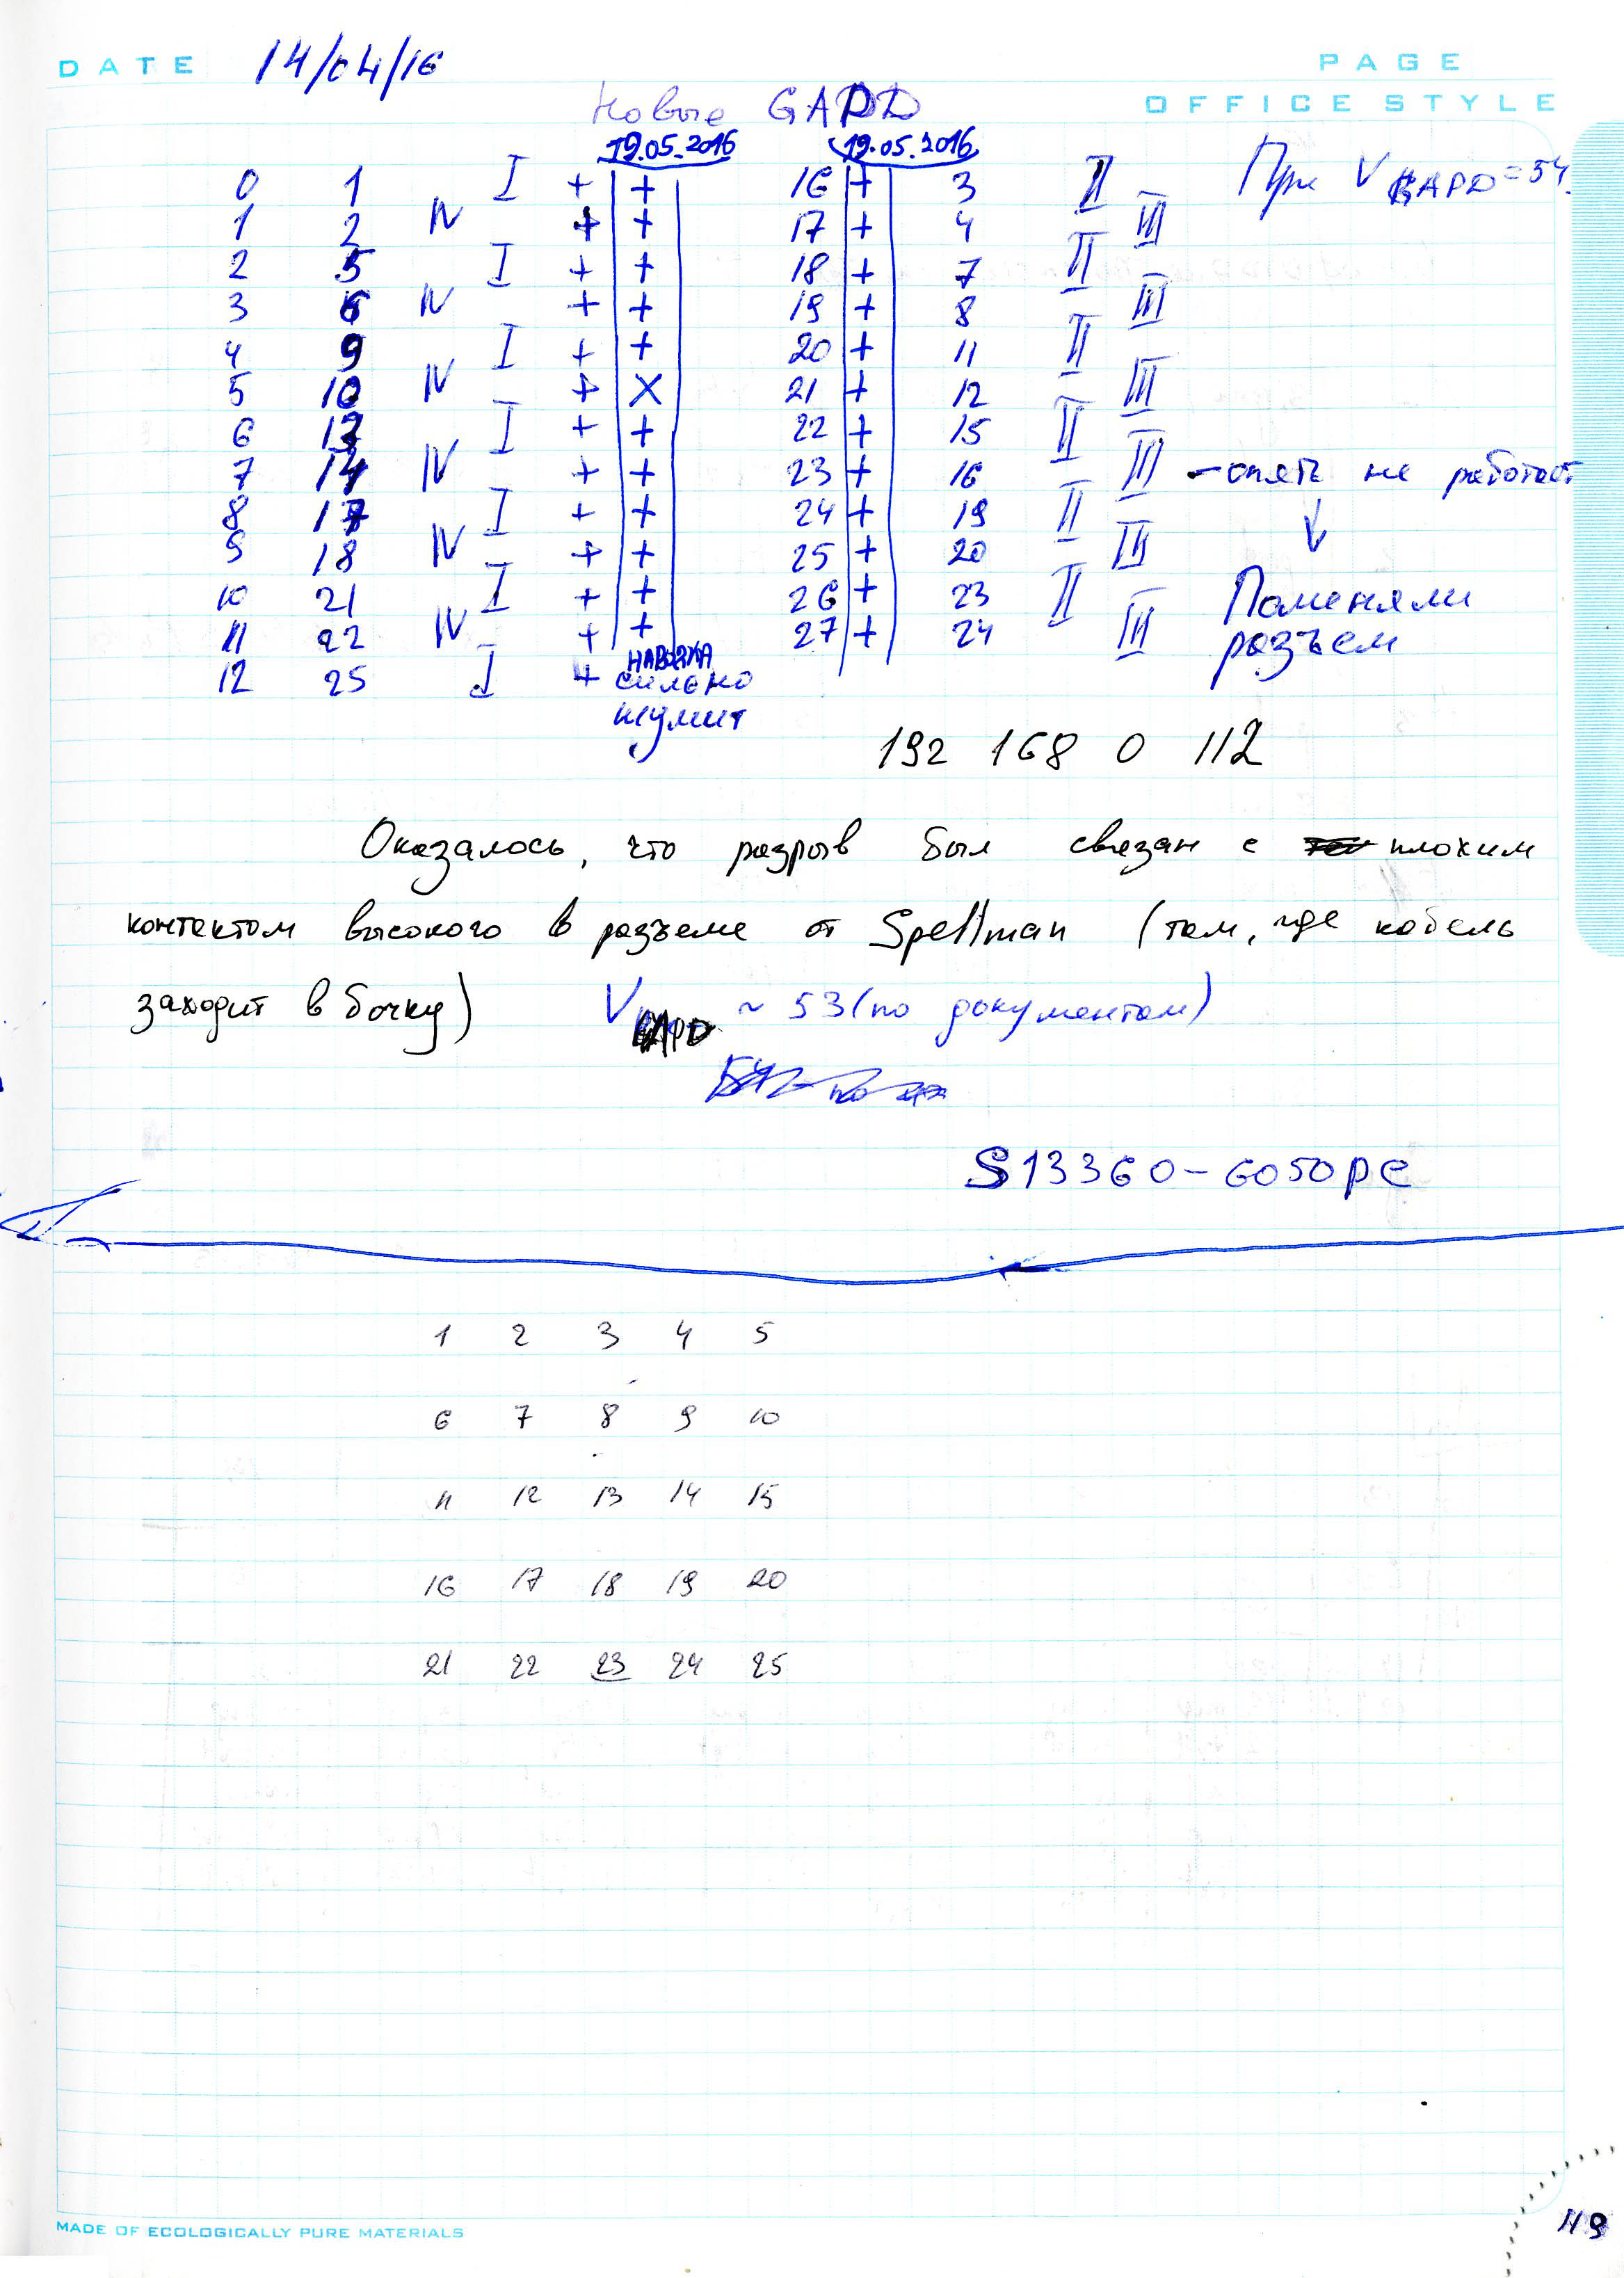 DATE 14/04/16 PAGE
OFFICE STYLE
Новые GAPD
19.05.2016 19.05.2016
0 1 I + + 16 + 3 II При V GAPD = 54.
1 2 IV + + 17 + 4 III
2 5 I + + 18 + 7 II
3 6 IV + + 19 + 8 III
4 9 I + + 20 + 11 II
5 10 IV + X 21 + 12 III
6 13 I + + 22 + 15 II
7 14 IV + + 23 + 16 III - опять не работает
8 17 I + + 24 + 19 II
9 18 IV + + 25 + 20 III
10 21 I + + 26 + 23 II Поменяли
11 22 IV + + 27 + 24 III разъем
12 25 I + НАВОДКА
сильно
шумит
192 168 0 112
Оказалось, что разрыв был связан с плохим
контактом высокого в разъеме от Spellman (там, где кабель
заходит в бочку) V GAPD ~ 53 (по документам)
S13360-6050pe
1 2 3 4 5
6 7 8 9 10
11 12 13 14 15
16 17 18 19 20
21 22 23 24 25
MADE OF ECOLOGICALLY PURE MATERIALS
119